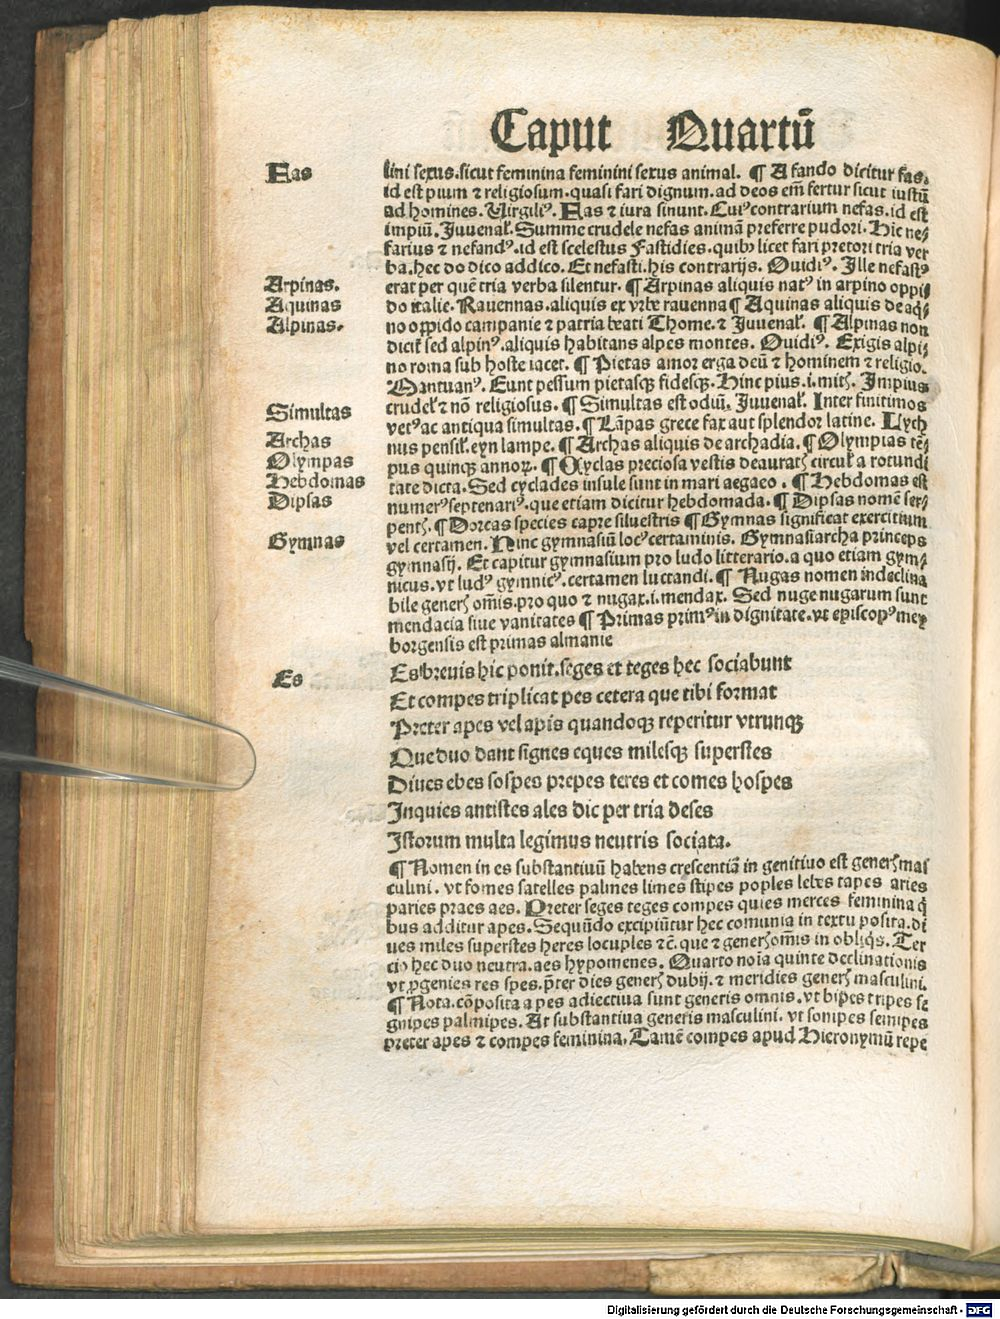 Caput Quartū
Fas
lini sexus.sicut feminina feminini sexus animal. ¶ A fando dicitur fas.
id est pium ⁊ religiosum.quasi fari dignum.ad deos em̄ fertur sicut iustū
ad homines. Virgiliꝰ. Fas ⁊ iura sinunt. Cuiꝰ contrarium nefas.id est
impiū. Juuenaƚ. Summe crudele nefas animā preferre pudori. Hic ne⸗
farius ⁊ nefandꝰ.id est scelestus Fastidies.quibꝫ licet fari pretori tria ver
ba.hec do dico addico. Et nefasti.his contrarijs. Ouidiꝰ. Ille nefastꝰ
Arpinas.
erat per quē tria verba silentur. ¶ Arpinas aliquis natꝰ in arpino oppi⸗
Aquinas
do italie. Rauennas.aliquis ex vrbe rauenna ¶ Aquinas aliquis de aq⸗
Alpinas.
no oppido campanie ⁊ patria beati Thome.⁊ Juuenaƚ. ¶ Alpinas non
dicit̃ sed alpinꝰ.aliquis habitans alpes montes. Ouidiꝰ. Exigis alpi⸗
no roma sub hoste iacet. ¶ Pietas amor erga deū ⁊ hominem ⁊ religio.
Mantuanꝰ. Eunt pessum pietasqꝫ fidesqꝫ. Hinc pius.i.mitꝭ. Impius
Simultas
crudeƚ ⁊ nō religiosus. ¶ Simultas est odiū. Juuenaƚ. Inter finitimos
vetꝰ ac antiqua simultas. ¶ Lāpas grece fax aut splendor latine. Lych
Archas
nus pensiƚ.eyn lampe. ¶ Archas aliquis de archadia. ¶ Olympias tē⸗
Olympas
pus quinqꝫ annoꝝ. ¶ Cyclas preciosa vestis deauratꝭ circuƚ a rotundi
Hebdomas
tate dicta. Sed cyclades insule sunt in mari aegaeo. ¶ Hebdomas est
Dipsas
numerꝰ septenariꝰ.que etiam dicitur hebdomada. ¶ Dipsas nomē ser⸗
pentꝭ. ¶ Dorcas species capre siluestris ¶ Gymnas significat exercitium
Gymnas
vel certamen. Hinc gymnasiū locꝰ certaminis. Gymnasiarcha princeps
gymnasij. Et capitur gymnasium pro ludo litterario.a quo etiam gym⸗
nicus.vt ludꝰ gymnicꝰ.certamen luctandi. ¶ Nugas nomen indeclina
bile generꝭ om̄is.pro quo ⁊ nugax.i.mendax. Sed nuge nugarum sunt
mendacia siue vanitates ¶ Primas primꝰ in dignitate.vt episcopꝰ mey
borgensis est primas almanie
Es
Es breuis hic ponit.seges et teges hec sociabunt
Et compes triplicat pes cetera que tibi format
Preter apes vel apis quandoqꝫ reperitur vtrunqꝫ
Que duo dant signes eques milesqꝫ superstes
Diues ebes sospes prepes teres et comes hospes
Inquies antistes ales dic per tria deses
Istorum multa legimus neutris sociata.
¶ Nomen in es substantiuū habens crescentiā in genitiuo est generꝭ mas
culini. vt fomes satelles palmes limes stipes poples lebes tapes aries
paries praes aes. Preter seges teges compes quies merces feminina q̄
bus additur apes. Sequūdo excipiūtur hec comunia in textu posita.di
ues miles superstes heres locuples ⁊c̄.que ⁊ generꝭ om̄is in obliqꝭ. Ter
cio hec duo neutra.aes hypomenes. Quarto noīa quinte declinationis
vt ꝓgenies res spes.p̄ter dies generꝭ dubij.⁊ meridies generꝭ masculini.
¶ Nota.cōposita a pes adiectiua sunt generis omnis.vt bipes tripes se
gnipes palmipes. At substantiua generis masculini. vt sonipes semipes
preter apes ⁊ compes feminina. Tamē compes apud Hieronymū repe
Digitalisierung gefördert durch die Deutsche Forschungsgemeinschaft - DFG